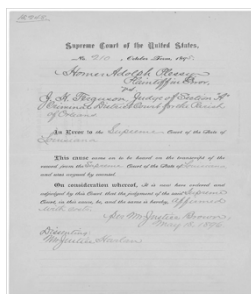 Supreme Court of the United States,
No. 210, October Term, 1895.
Homer Adolph Plessy
Plaintiff in Error,
vs.
J. H. Ferguson, Judge of Section "A"
Criminal District Court for the Parish
of Orleans
In Error to the Supreme Court of the State of
Louisiana
This cause came on to be heard on the transcript of the
record from the Supreme Court of the State of Louisiana
and was argued by counsel.
On consideration whereof, It is now here ordered and
adjudged by this Court that the judgment of the said Supreme
Court, in this cause, be, and the same is hereby, affirmed
with costs.
Per Mr. Justice Brown,
May 18, 1896.
Dissenting:
Mr. Justice Harlan